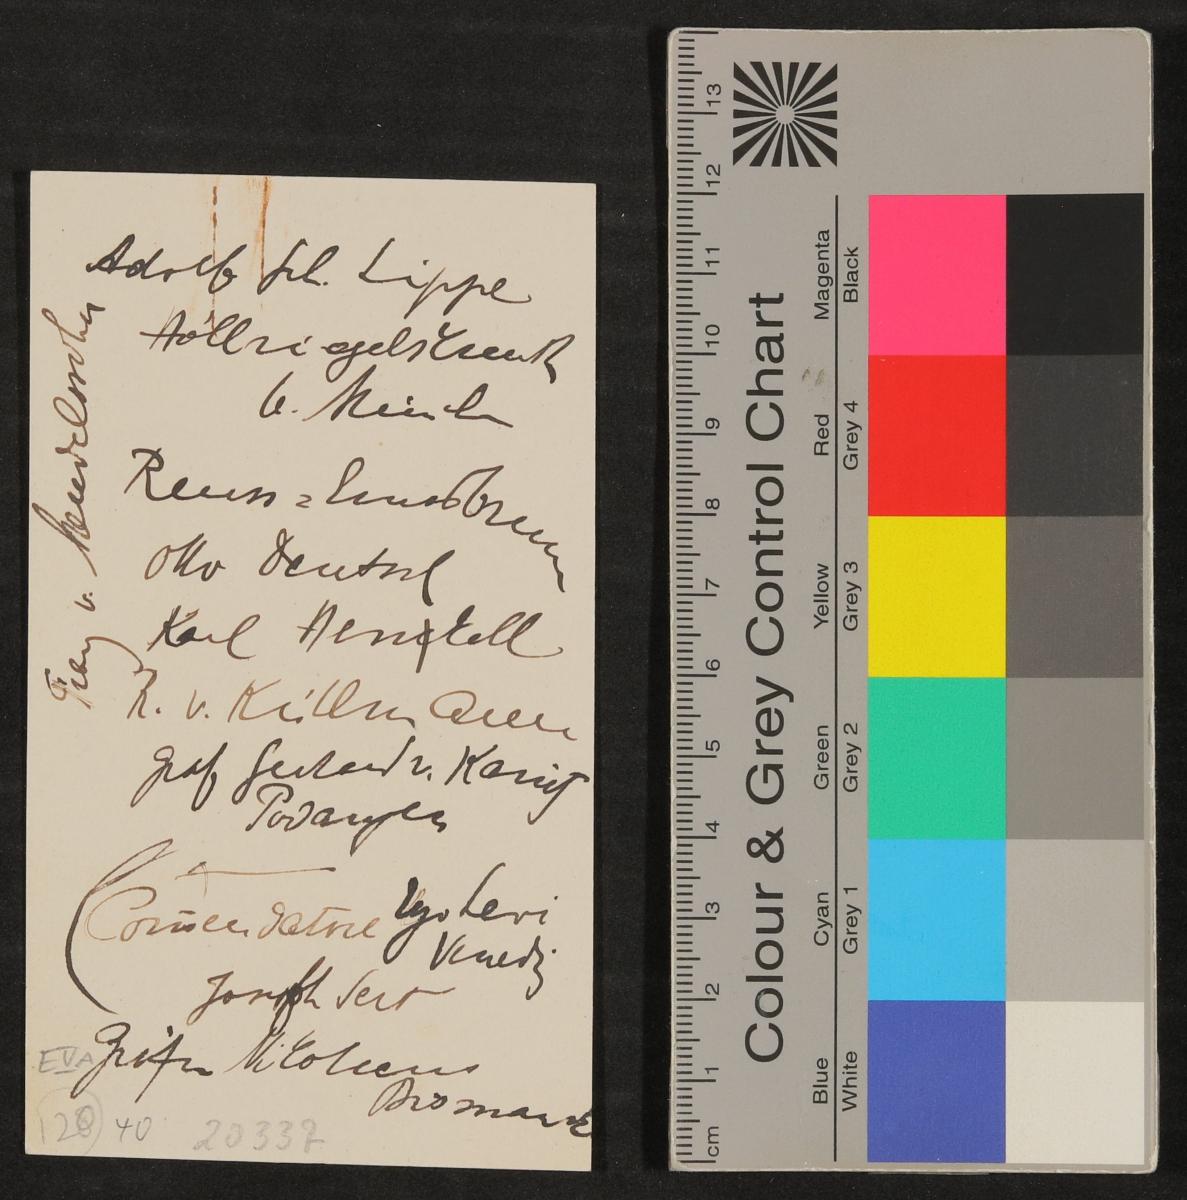 Adolf Sch. Lippe
Höllriegelskreuth
b. Münch
Frau v. Mendelssohn
Reuss =
Otto Deutsch
Karl Henckell
R. v. Kühlmann
Graf Gerhard v. Kanitz
Podangen
Commendatore Ugo Levi
Venedig
Joseph Sert
Gräfin Nikolaus
Bismarck
EVA
128 40 20337
Colour & Grey Control Chart
Blue Cyan Green Yellow Red Magenta
White Grey 1 Grey 2 Grey 3 Grey 4 Black
cm 1 2 3 4 5 6 7 8 9 10 11 12 13